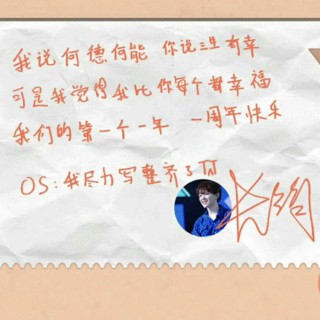 我说何德何能 你说三生有幸
可是我觉得我比你每个都幸福
我们的第一个一年 一周年快乐
OS:我尽力写整齐了